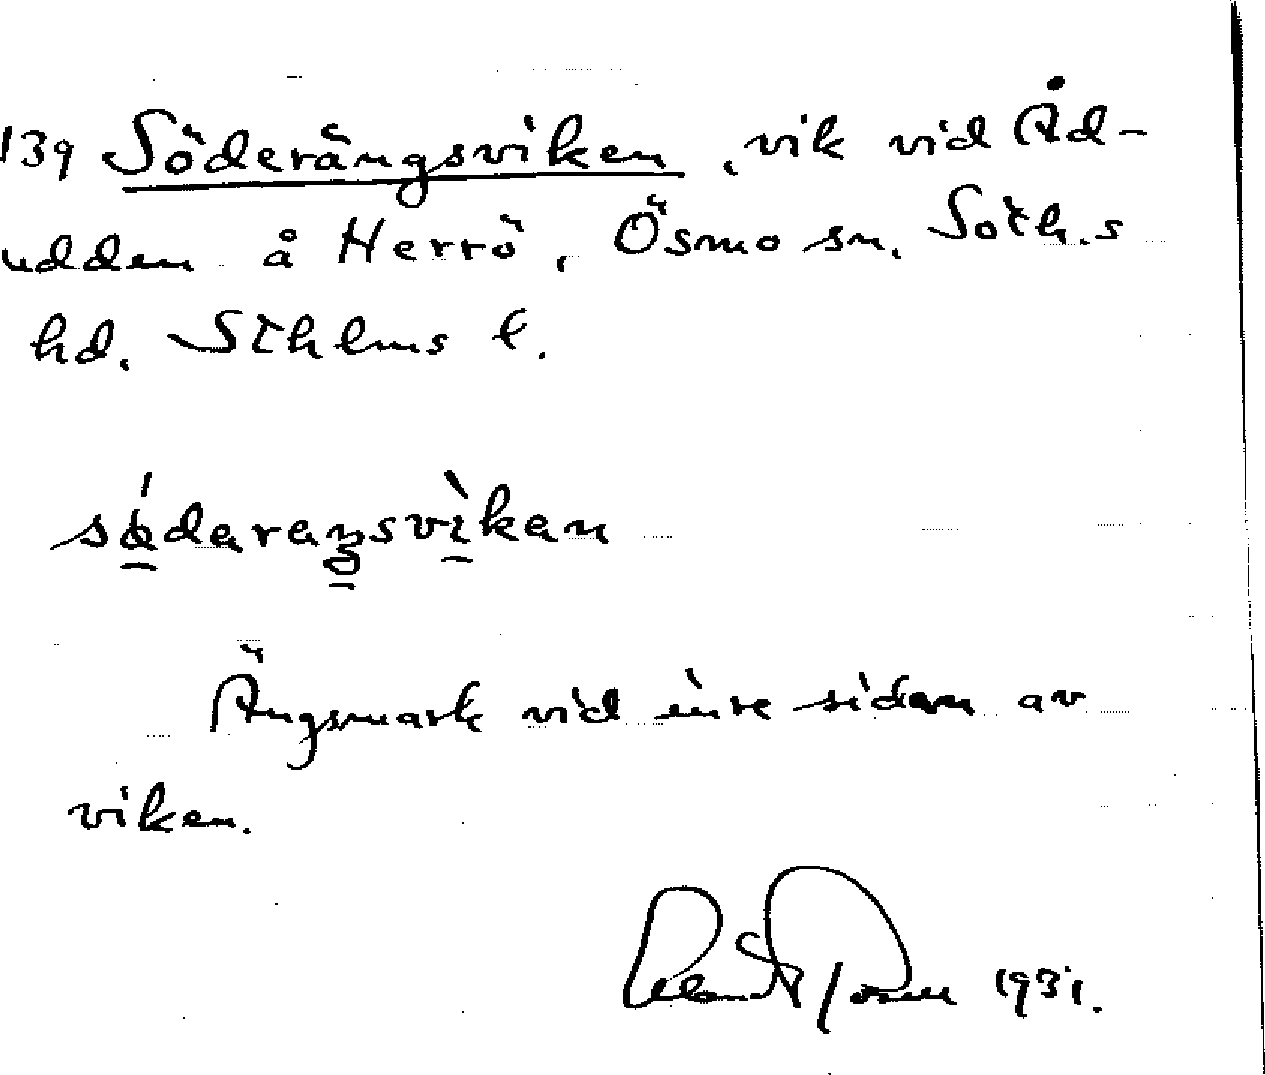 139 Söderängsviken, vik vid Åd-
udden å Herrö, Ösmo sn, Soth.s
hd. Sthlms l.
södaraŋsvìkan
Ängsmark vid inre sidan av
viken.
1931.